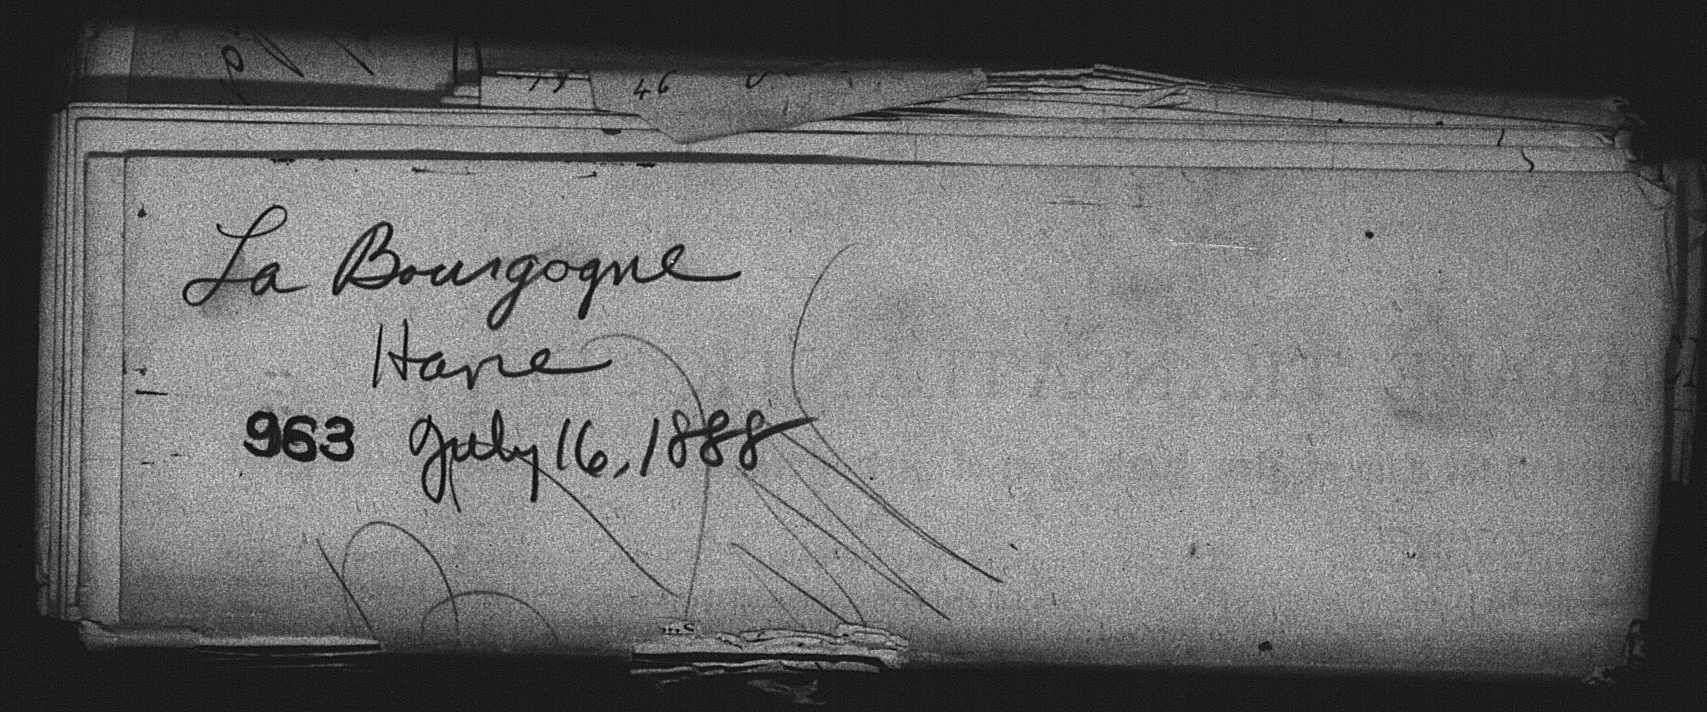 46
La Bourgogne
Havre
963 July 16, 1888